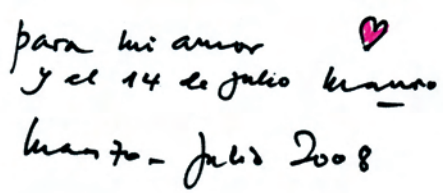 para mi amor
y el 14 de julio
marzo - Julio 2008